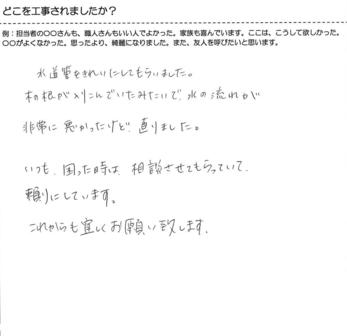 どこを工事されましたか？
例：担当者の〇〇さんも、職人さんもいい人でよかった。家族も喜んでいます。ここは、こうして欲しかった。
〇〇がよくなかった。思ったより、綺麗になりました。また、友人を呼びたいと思います。
水道管をきれいにしてもらいました。
木の根が入りこんでいたみたいで、水の流れが
非常に悪かったけど、直りました。
いつも、困った時は、相談させてもらっていて、
頼りにしています。
これからも宜しくお願い致します。